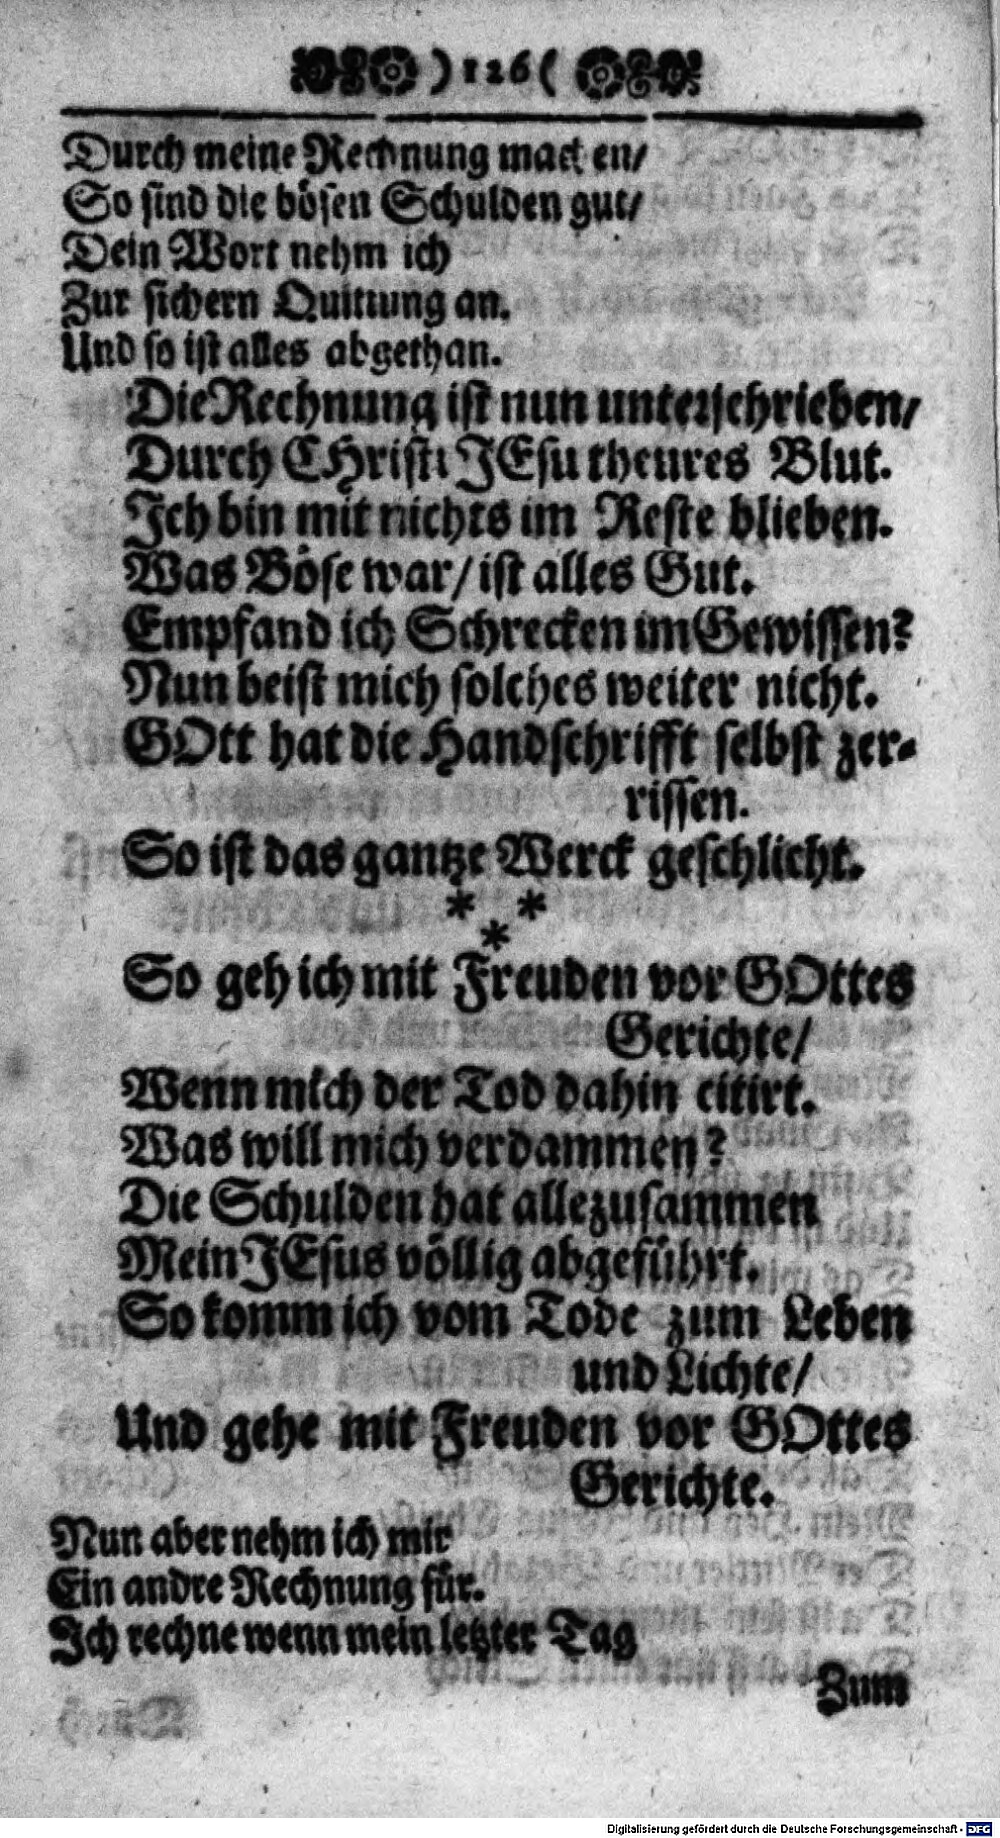 ) 126 (
Durch meine Rechnung machen/
So sind die bösen Schulden gut/
Dein Wort nehm ich
Zur sichern Quittung an.
Und so ist alles abgethan.
Die Rechnung ist nun unterschrieben/
Durch CHristi JEsu theures Blut.
Ich bin mit nichts im Reste blieben.
Was Böse war/ ist alles Gut.
Empfand ich Schrecken im Gewissen?
Nun beist mich solches weiter nicht.
GOtt hat die Handschrifft selbst zer-
rissen.
So ist das gantze Werck geschlicht.
* *
*
So geh ich mit Freuden vor GOttes
Gerichte/
Wenn mich der Tod dahin citirt.
Was will mich verdammen?
Die Schulden hat allezusammen
Mein JEsus völlig abgeführt.
So komm ich vom Tode zum Leben
und Lichte/
Und gehe mit Freuden vor GOttes
Gerichte.
Nun aber nehm ich mir
Ein andre Rechnung für.
Ich rechne wenn mein letzter Tag
Zum
Digitalisierung gefördert durch die Deutsche Forschungsgemeinschaft - DFG